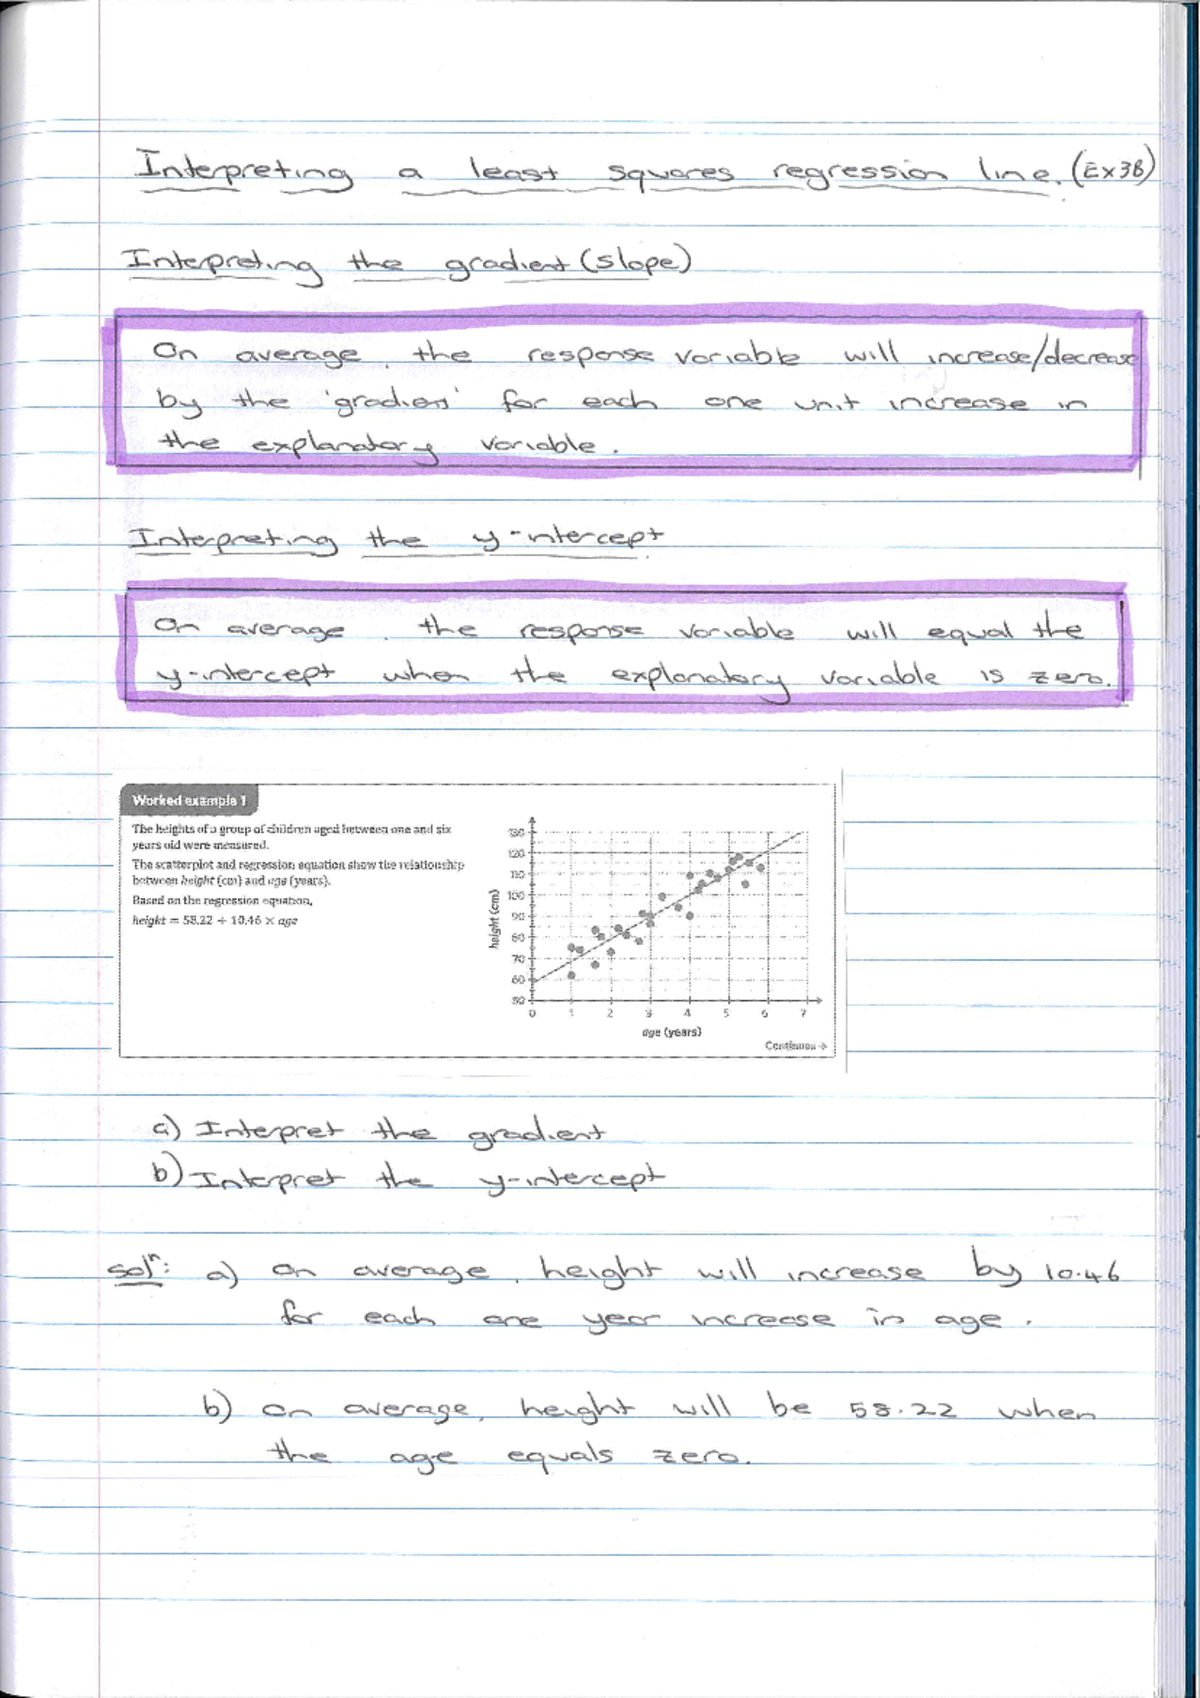 Interpreting a least squares regression line. (Ex3B)
Interpreting the gradient (slope)
On average, the response variable will increase/decrease
by the 'gradient' for each one unit increase in
the explanatory variable.
Interpreting the y-intercept
On average, the response variable will equal the
y-intercept when the explanatory variable is zero.
Worked example 1
The heights of a group of children aged between one and six
years old were measured.
The scatterplot and regression equation show the relationship
between height (cm) and age (years).
Based on the regression equation,
height = 58.22 + 10.46 × age
height (cm)
130
120
110
100
90
80
70
60
50
0 1 2 3 4 5 6 7
age (years)
Continues →
a) Interpret the gradient
b) Interpret the y-intercept
solⁿ: a) on average, height will increase by 10.46
for each one year increase in age.
b) on average, height will be 58.22 when
the age equals zero.